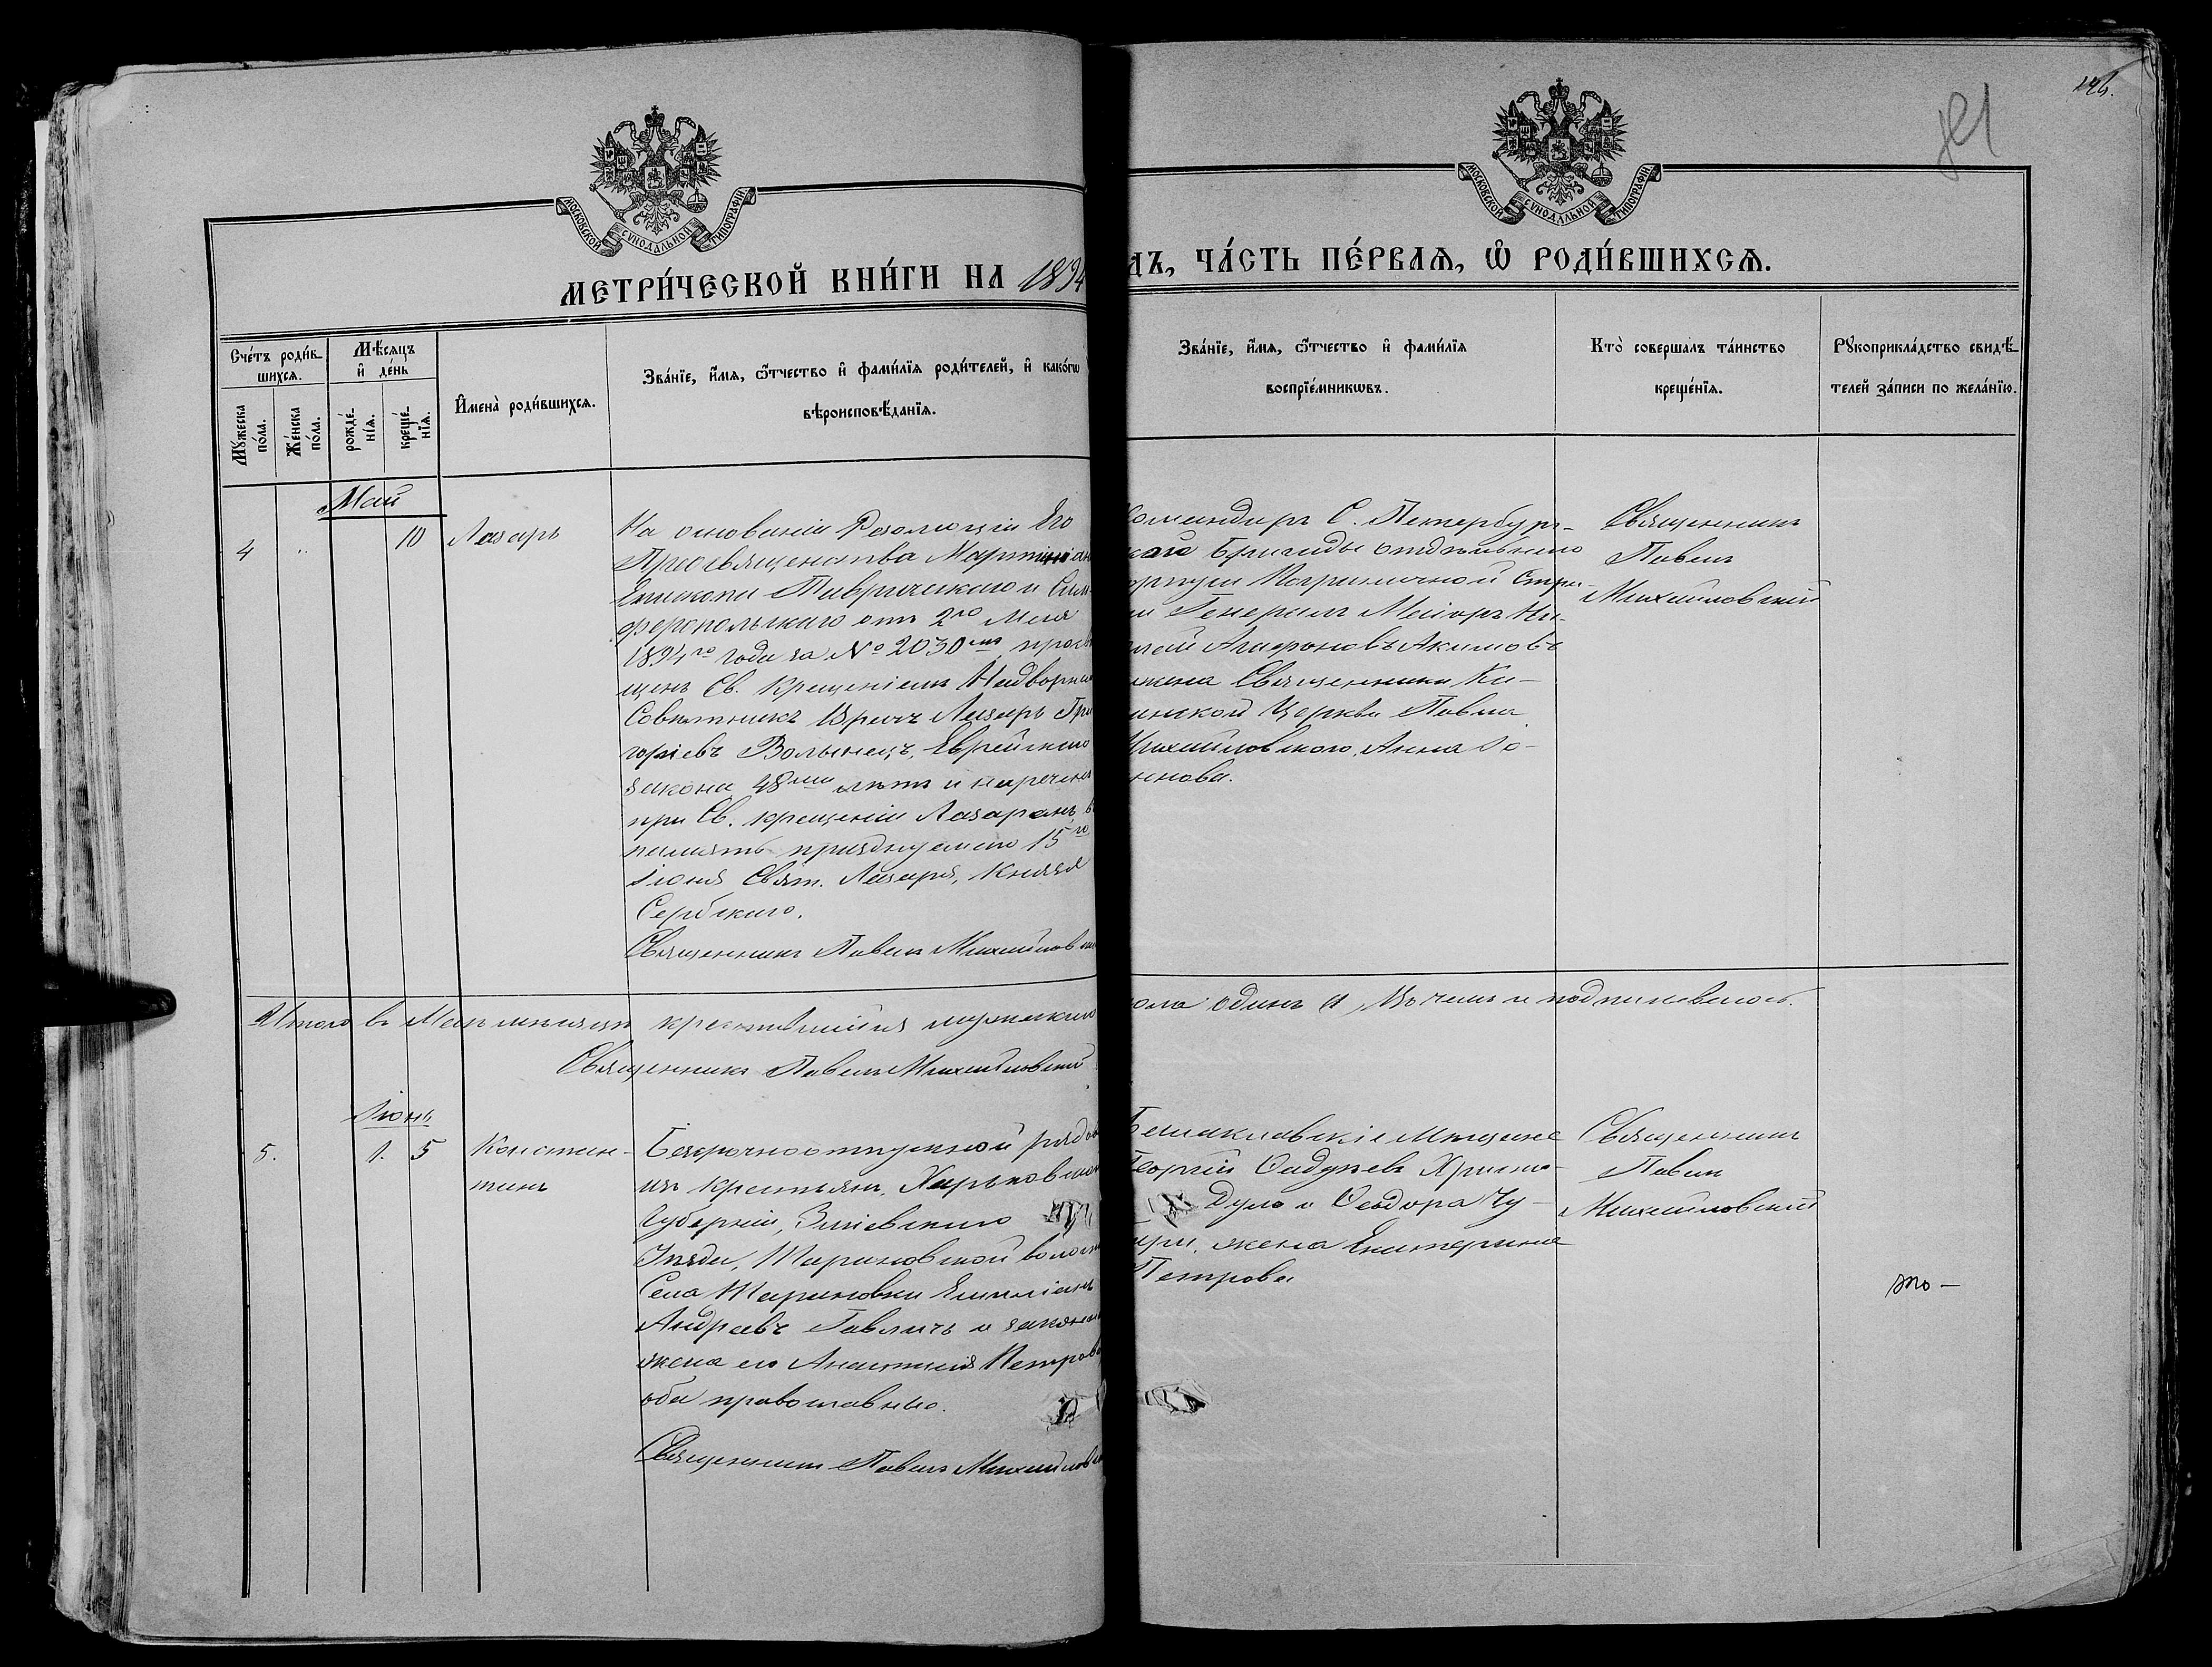 126.
МОСКОВСКОЙ СѴНОДАЛЬНОЙ ТИПОГРАФІИ
МОСКОВСКОЙ СѴНОДАЛЬНОЙ ТИПОГРАФІИ
МЕТРИ́ЧЕСКОЙ КНИ́ГИ НА 1894
ДЪ, ЧА́СТЬ ПЕ́РВАѦ, Ѽ РОДИ́ВШИХСѦ.
Сче́тъ роди́в-
шихсѧ.
Мꙋ́жеска по́ла.
Же́нска по́ла.
Мѣ́сѧцъ
и҆ де́нь
рожде́-
нїѧ.
креще́-
нїѧ.
И҆мена̀ роди́вшихсѧ.
Зва́нїе, и҆́мѧ, ѻ҆́тчество и҆ фами́лїѧ роди́телей, и҆ како́гѡ
вѣроисповѣ́данїѧ.
Зва́нїе, и҆́мѧ, ѻ҆́тчество и҆ фами́лїѧ
воспрїе́мникѡвъ.
Кто̀ соверша́лъ та́инство
креще́нїѧ.
Рꙋкоприкла́дство свидѣ́-
телей за́писи по жела́нїю.
Май
4 " 10 Лазарь
На основаніи Резолюціи Его
Преосвященства Мартиніан
Епископа Таврическаго и Сим-
феропольскаго отъ 2го Мая
1894го года за № 2030мъ просвѣ
щенъ Св. Крещеніемъ Надворный
Совѣтникъ Врачъ Лазарь Гри
горіевъ Волынецъ, Еврейскаго
закона 48ми лѣтъ и нареченъ
при Св. крещеніи Лазаремъ, в
память празднуемаго 15го
Іюня Свят. Лазаря, Князя
Сербскаго.
Священникъ Павелъ Михайловскі
Командиръ С. Петербург-
ской Бригады отдѣльнаго
орпуса Пограничной Стра-
и Генералъ Маіоръ Ни-
лай Агафоновъ Акимовъ
жена Священника Ка-
инской Церкви Павла
Михайловскаго, Анна Іо-
ннова.
Священникъ
Павелъ
Михайловскій
Итого въ Маѣ мѣсяцѣ крестившійся мужескаго
ола одинъ 1, въ чемъ и подписываюсь.
Священникъ Павелъ Михайловскій
Іюнь
5. 1. 5 Констан-
тинъ
Безсрочноотпускной рядов
изъ крестьянъ, Харьковской
Губерніи, Зміевскаго
Уѣзда, Тарановской волости
Села Тарановки Емиліанъ
Андреевъ Гавличъ и законная
жена его Анастасія Петрова
оба православные.
Священникъ Павелъ Михайлов
Балаклавскіе Мѣщане
Георгій Христо-
Дуло и Ѳеодора Чу-
жена Екатерина
Петрова
Священникъ
Павелъ
Михайловскій